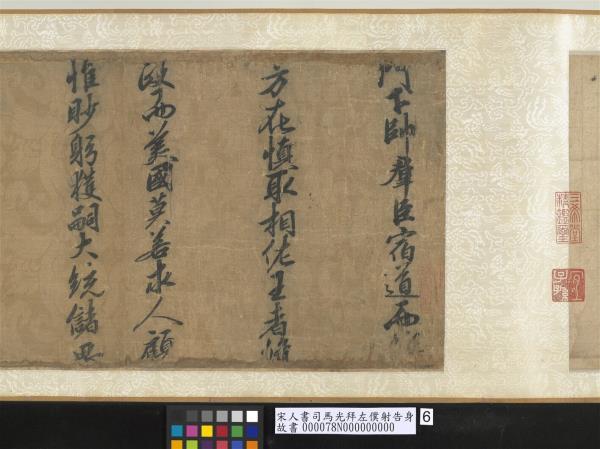 門下帥羣臣宿道而
方在慎取相佐王者脩
政而美國莫若求人顧
惟眇躬獲嗣大統儲思
三希堂精鑑璽
宜子孫
宋人書司馬光拜左僕射告身
故書 000078N000000000
6